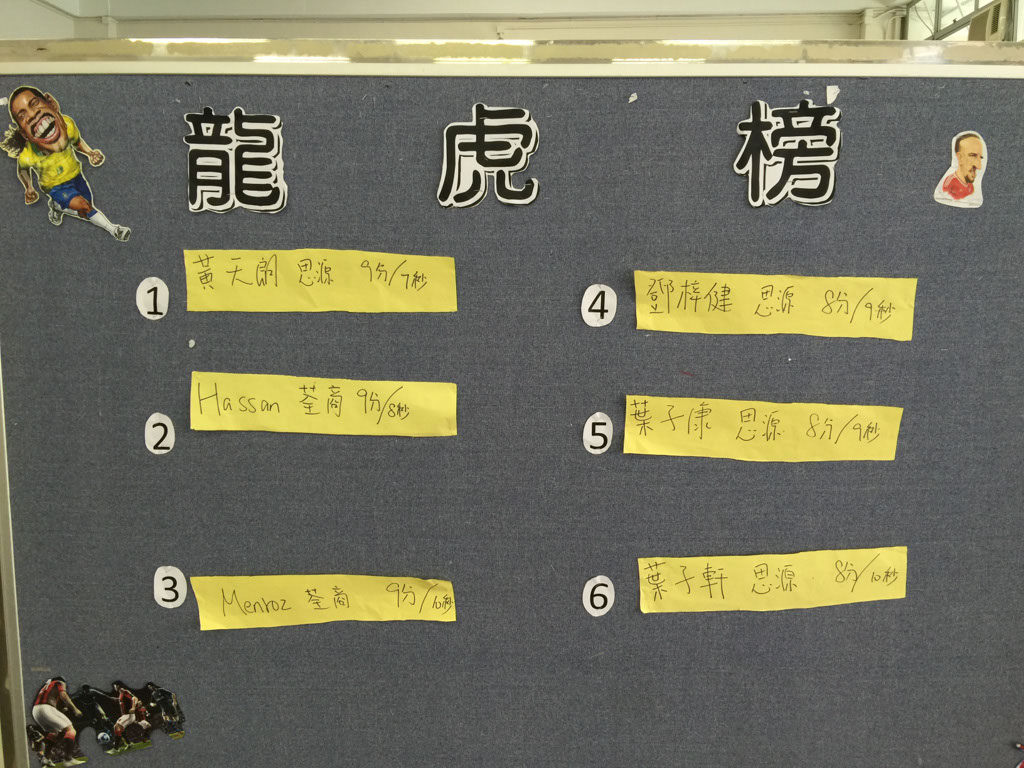 龍虎榜
1 黃天朗 思源 9分/7秒
2 Hassan 荃商 9分/8秒
3 Menroz 荃商 9分/10秒
4 鄧梓健 思源 8分/9秒
5 葉子康 思源 8分/9秒
6 葉子軒 思源 8分/10秒